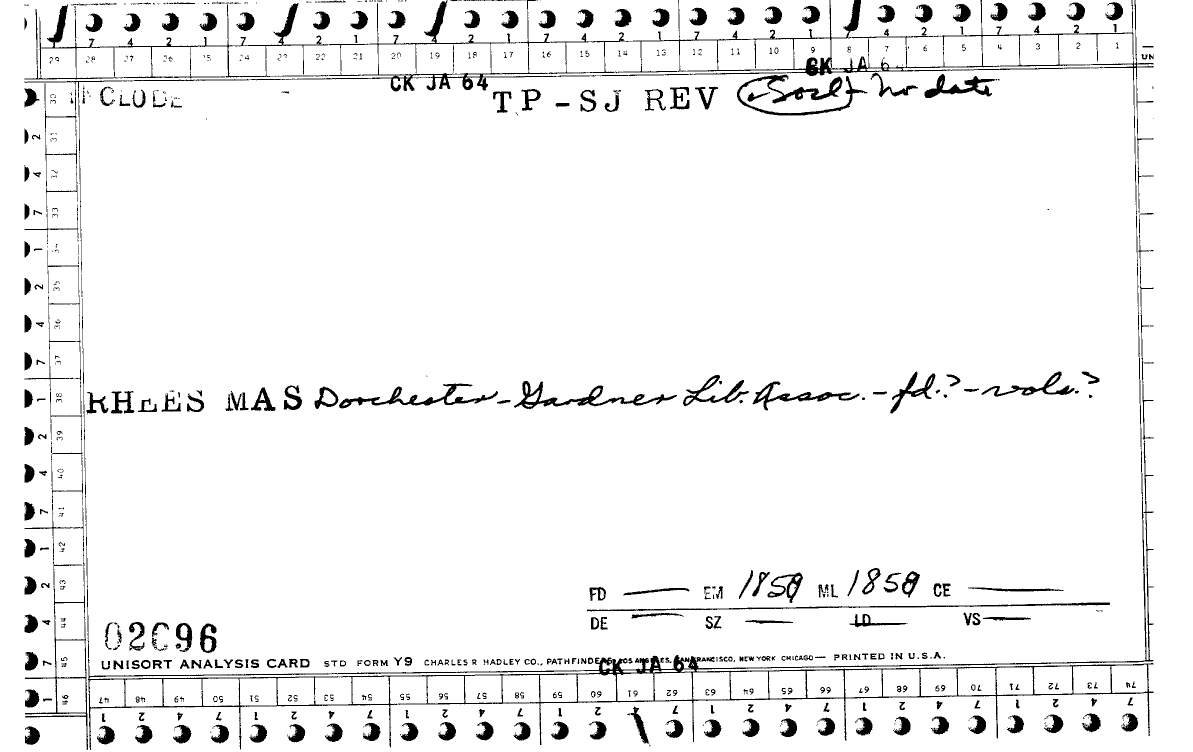 7 4 2 1 7 4 2 1 7 4 2 1 7 4 2 1 7 4 2 1 7 4 2 1
29 28 27 26 25 24 23 22 21 20 19 18 17 16 15 14 13 12 11 10 9 8 7 6 5 4 3 2 1
CK JA 6
CK JA 64
CLODE TP-SJ REV Socl - no date
RHEES MAS Dorchester - Gardner Lib. Assoc. - fd.? - vols.?
FD — EM 1859 ML 1859 CE —
DE — SZ — LD — VS —
02696
UNISORT ANALYSIS CARD STD FORM Y9 CHARLES R HADLEY CO., PATHFINDERS, LOS ANGELES, SAN FRANCISCO, NEW YORK CHICAGO — PRINTED IN U.S.A.
CK JA 64
47 48 49 50 51 52 53 54 55 56 57 58 59 60 61 62 63 64 65 66 67 68 69 70 71 72 73 74
1 2 4 7 1 2 4 7 1 2 4 7 1 2 4 7 1 2 4 7 1 2 4 7 1 2 4 7